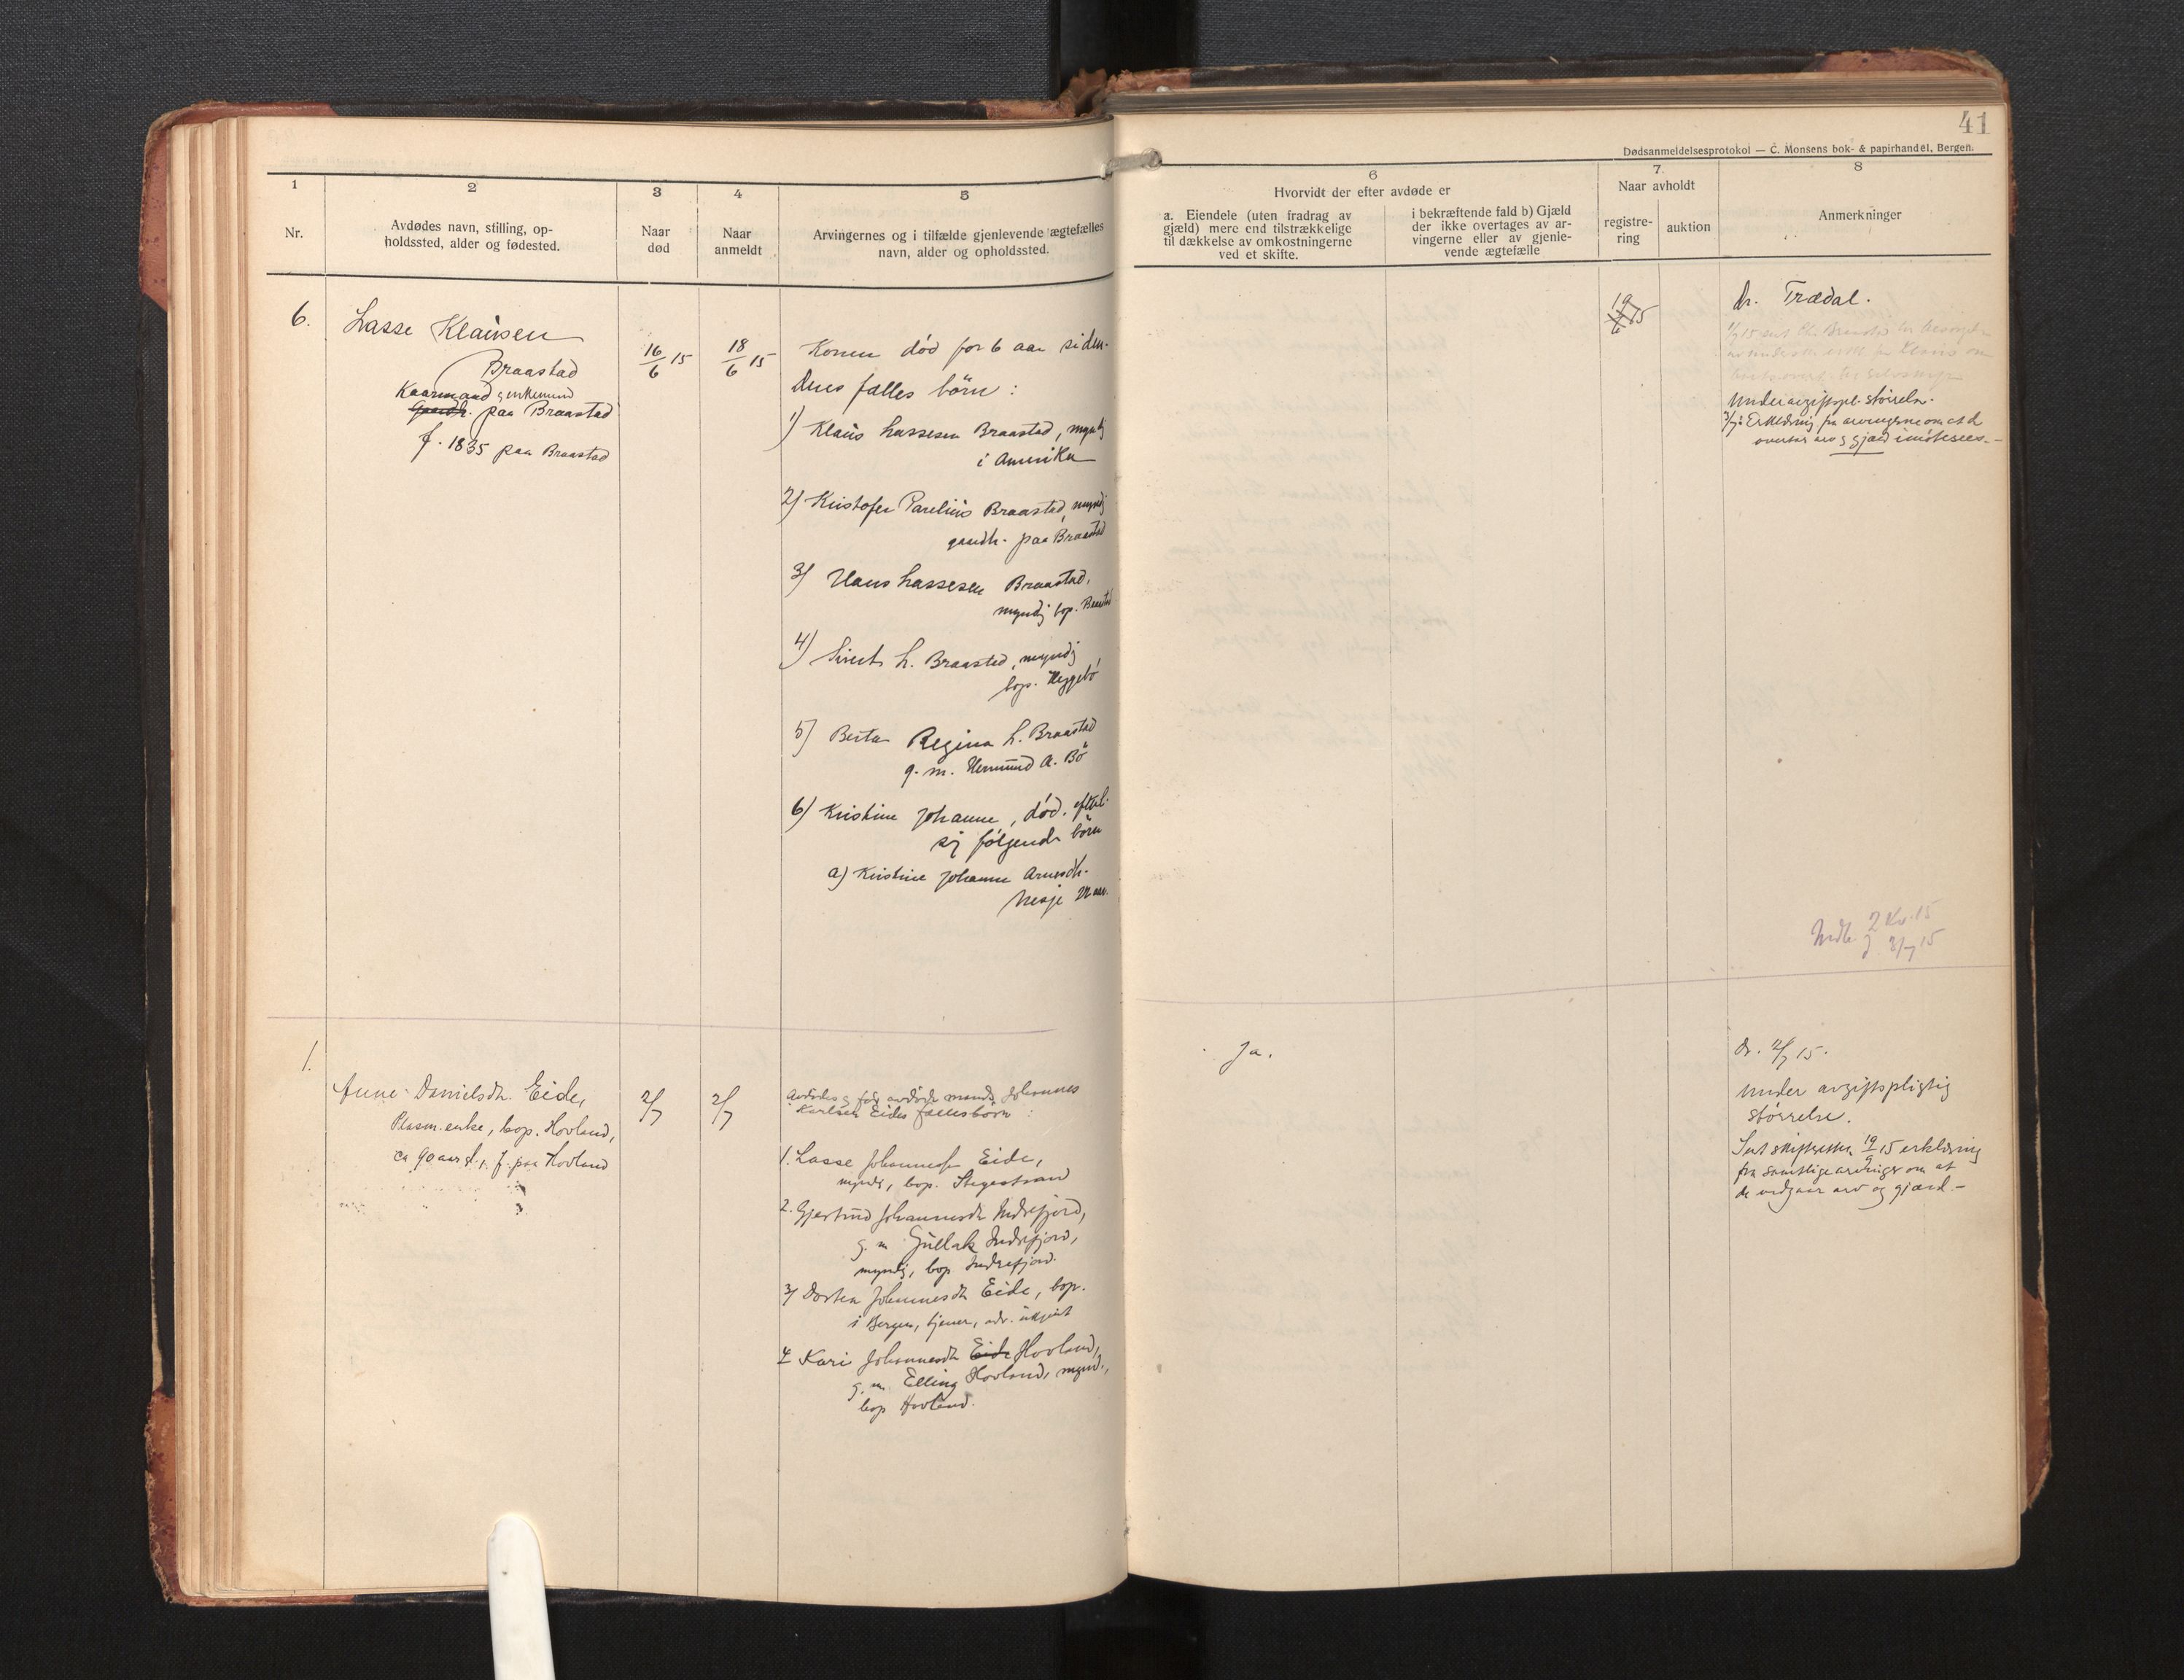 41
Dødsanmeldelsesprotokol — C. Monsens bok- & papirhandel, Bergen.
1
2
3
4
5
6
7
8
Nr.
Avdødes navn, stilling, op-
holdssted, alder og fødested.
Naar
død
Naar
anmeldt
Arvingernes og i tilfælde gjenlevende ægtefælles
navn, alder og opholdssted.
Hvorvidt der efter avdøde er
a. Eiendele (uten fradrag av
gjæld) mere end tilstrækkelige
til dækkelse av omkostningerne
ved et skifte.
i bekræftende fald b) Gjæld
der ikke overtages av ar-
vingerne eller av gjenle-
vende ægtefælle
Naar avholdt
registre-
ring
auktion
Anmerkninger
6.
Lasse Klausen
Braastad
Kaarmand, enkemand
Gaardb. paa Braastad
f. 1835 paa Braastad
16/6 15
18/6 15
Konen død for 6 aar siden.
Deres fælles børn:
1) Klaus Lassesen Braastad, myndig
i Amerika
2) Kristofer Parelius Braastad, myndig
gaardb. paa Braastad
3) Hans Lassesen Braastad,
myndig bop. Braastad
4) Sivert L. Braastad, myndig
bop. Heggebø
5) Berta Regina L. Braastad
g. m. Hermund A. Bø
6) Kristine Johanne, død, efterl.
sig følgende børn
a) Kristine Johanne Arnesdtr.
19/6 15
Dr. Trædal.
Under avgiftspl. størrelse.
Erklæring fra arvingerne om at de
overtar arv og gjæld imøtesees.-
2 Kv. 15
3/7 15
1.
Anne Danielsdtr. Eide,
Plasm.enke, bop. Hovland,
ca 90 aar gl., f. paa Hovland
2/7
2/7
Avdødes og før avdøde mands Johannes
Karlsen Eides fællesbørn:
1. Lasse Johannessen Eide,
myndig, bop. Stegestrand
2. Gjertrud Johannesdtr. Indrefjord,
g. m. Gullak Indrefjord,
myndig, bop. Indrefjord.
3) Dortea Johannesdtr Eide, bop.
i Bergen, tjener, adr. ukjent
4 Kari Johannesdtr Eide Hovland,
g. m. Elling Hovland, mynd.,
bop Hovland.
Ja.
Dr. 2/7 15.
Under avgiftspligtig
størrelse.
Sat skifteretten 19/9 15 erklæring
fra samtlige arvinger om at
de vedgaar arv og gjæld.-